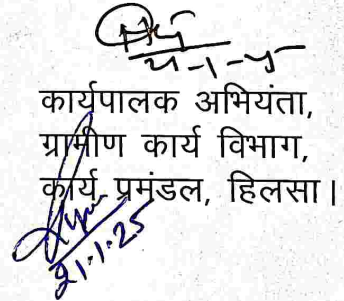 कार्यपालक अभियंता,
ग्रामीण कार्य विभाग,
कार्य प्रमंडल, हिलसा।
21.1.25